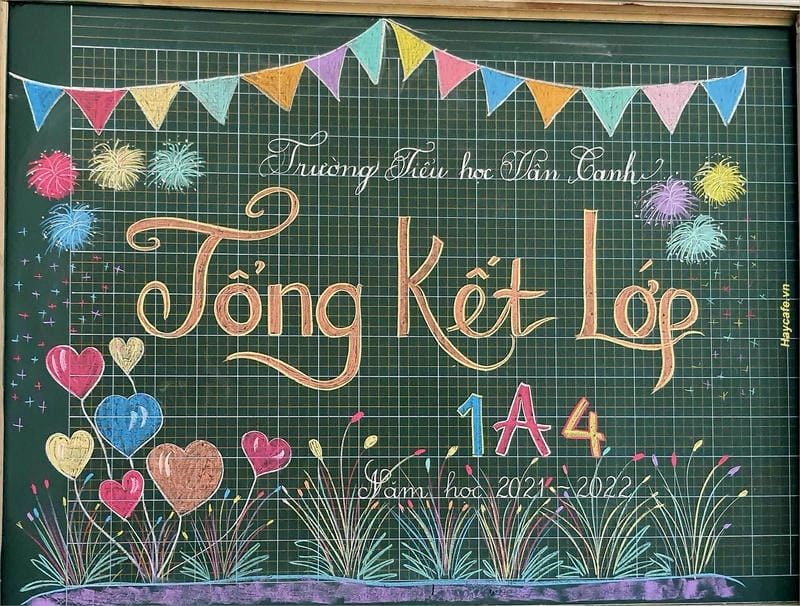 Trường Tiểu học Vân Canh
Tổng Kết Lớp
1A4
Năm học 2021-2022
Haycafe.vn